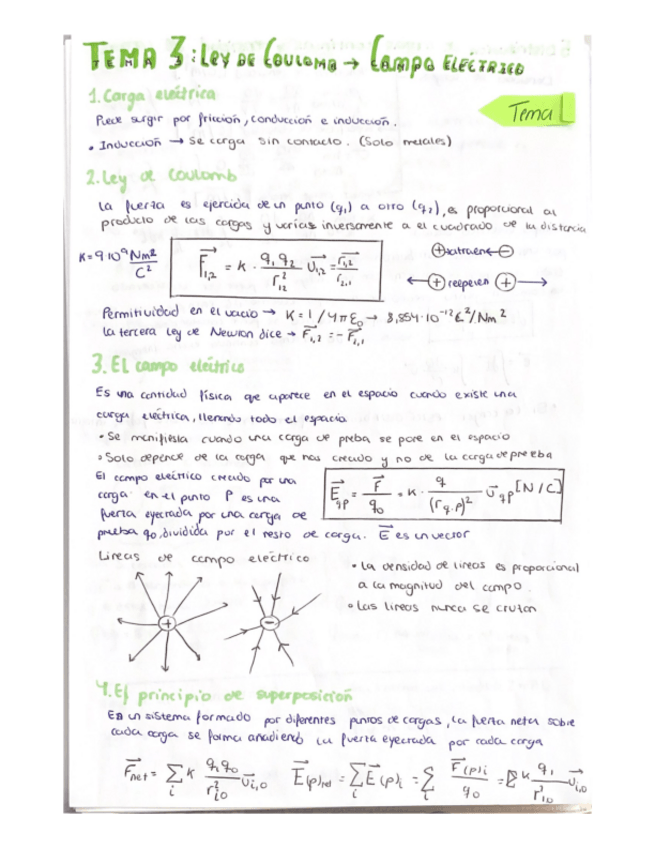 TEMA 3: LEY DE COULOMB → CAMPO ELÉCTRICO
1. Carga eléctrica
Tema 1
Puede surgir por fricción, conducción e inducción.
• Inducción → se carga sin contacto. (Solo metales)
2. Ley de Coulomb
La fuerza es ejercida de un punto (q₁) a otro (q₂), es proporcional al
producto de las cargas y varías inversamente a el cuadrado de la distancia
K=9·10⁹ Nm²/C²
F⃗₁,₂ = K · q₁q₂/r²₁₂ u⃗₁,₂ = r⃗₁,₂/r₂,₁
⊕→atraen←⊖
←⊕repelen⊕→
Permitividad en el vacío → K=1/4πε₀ → 8,854·10⁻¹²C²/Nm²
la tercera Ley de Newton dice → F⃗₁,₂ = -F⃗₂,₁
3. El campo eléctrico
Es una cantidad física que aparece en el espacio cuando existe una
carga eléctrica, llenando todo el espacio.
• Se manifiesta cuando una carga de preba se pone en el espacio
• Solo depende de la carga que nos creado y no de la carga de preeba
El campo eléctrico creado por una
carga en el punto P es una
fuerza ejercada por una carga de
prueba q₀, dividida por el resto de carga. E⃗ es un vector
E⃗qp = F⃗/q₀ = K · q/(r q,p)² u⃗qp [N/C]
Líneas de campo eléctrico
• La densidad de líneas es proporcional
a la magnitud del campo.
• Las líneas nunca se cruzan
+
−
4. El principio de superposición
En un sistema formado por diferentes puntos de cargas, la fuerza neta sobre
cada carga se forma añadiendo la fuerza ejercada por cada carga
F⃗net = Σi K qᵢq₀/r²ᵢ₀ u⃗ᵢ,₀ E⃗(p) = Σi E⃗(p)ᵢ = Σi F⃗(p)ᵢ/q₀ = Σ K